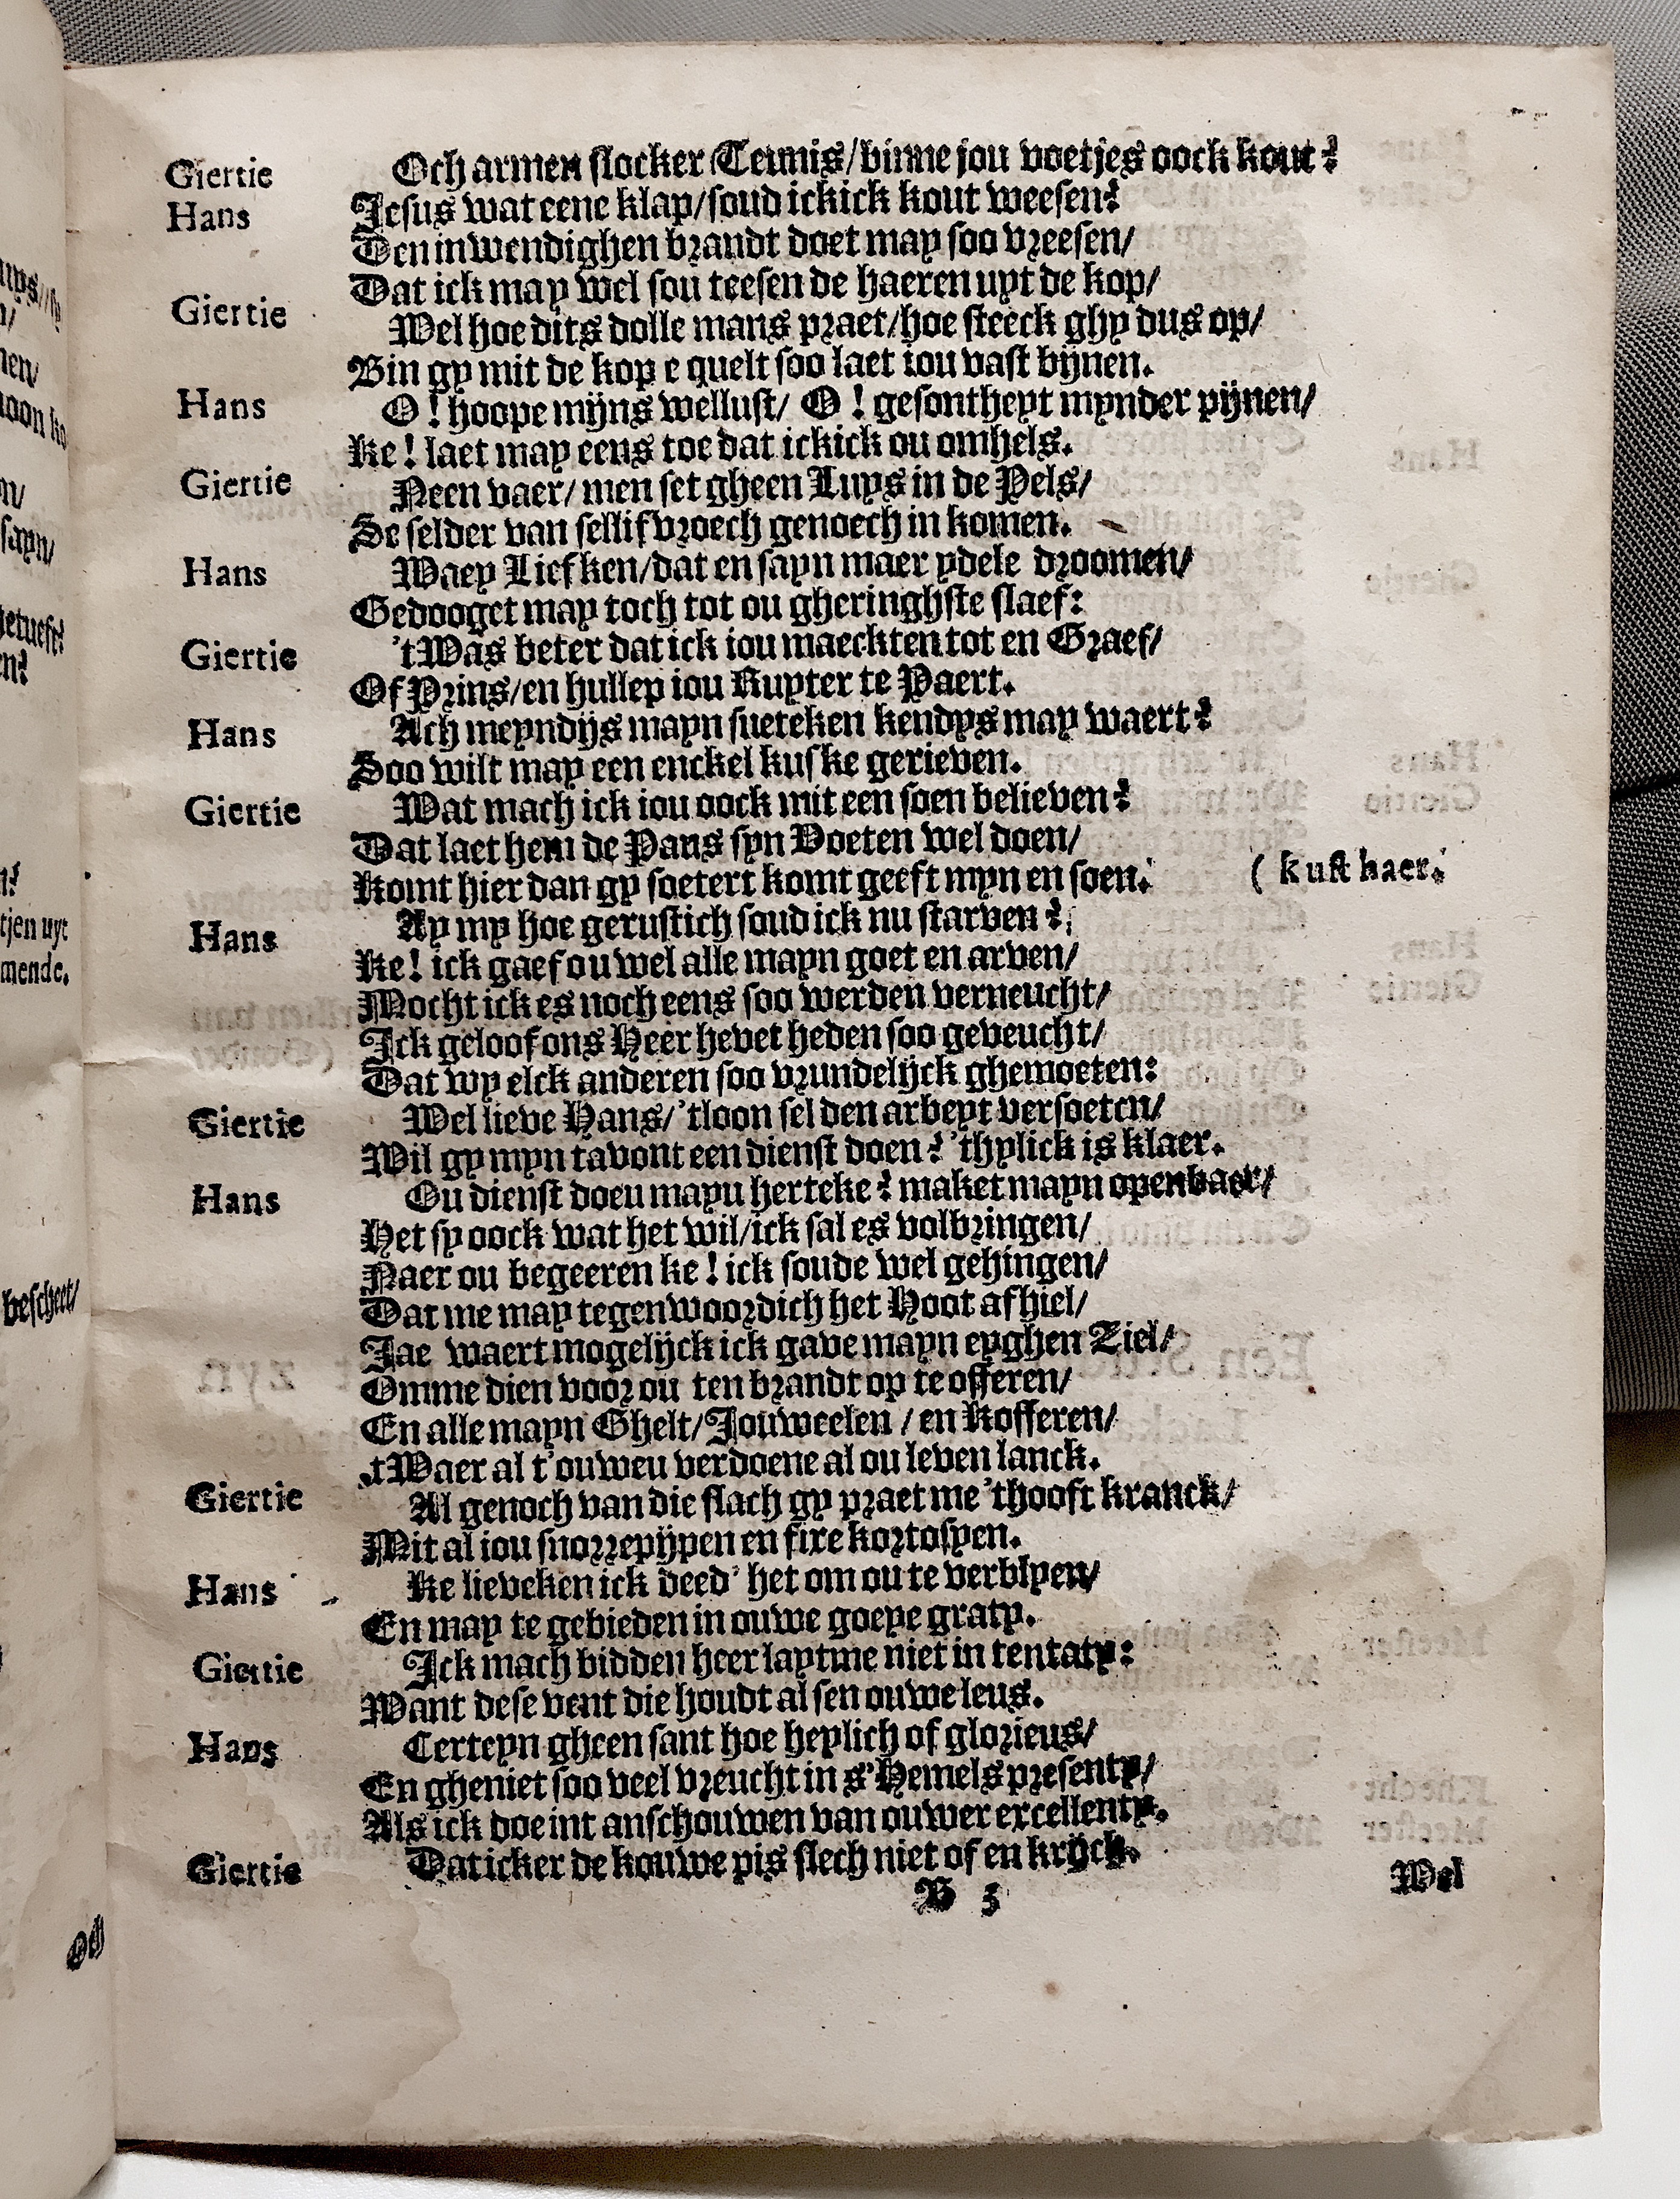 Giertie Och armen slocker Teunis/binne jou voetjes oock kout?
Hans Jesus wat eene klap/soud ickick kout weesen?
Den inwendighen brandt doet may soo vreesen/
Dat ick may wel sou teesen de haeren uyt de kop/
Giertie Wel hoe dits dolle mans praet/hoe steeck ghy dus op/
Bin gy mit de kop e quelt soo laet iou vast bijnen.
Hans O! hoope mijns wellust/ O! gesontheyt mynder pijnen/
Ke! laet may eens toe dat ickick ou omhels.
Giertie Neen vaer/men set gheen Luys in de Pels/
Se selder van sellif vroech genoech in komen.
Hans Waey Liefken/dat en sayn maer ydele droomen/
Gedooget may toch tot ou gheringhste slaef:
Giertie 'tWas beter dat ick iou maeckten tot en Graef/
Of Prins/en hullep iou Ruyter te Paert.
Hans Ach meyndijs mayn sueteken kendys may waert?
Soo wilt may een enckel kuske gerieven.
Giertie Wat mach ick iou oock mit een soen believen?
Dat laet hem de Paus syn Voeten wel doen/
Komt hier dan gy soetert komt geeft myn en soen. ( kust haer.
Hans Ay my hoe gerustich soud ick nu starven?
Ke! ick gaef ou wel alle mayn goet en arven/
Mocht ick es noch eens soo werden verneucht/
Ick geloof ons Heer hevet heden soo geveucht/
Dat wy elck anderen soo vrundelijck ghemoeten:
Giertie Wel lieve Hans/'tloon sel den arbeyt versoeten/
Wil gy myn tavont een dienst doen? 'thylick is klaer.
Hans Ou dienst doeu mayu herteke? maket mayn openbaer/
Het sy oock wat het wil/ick sal es volbringen/
Naer ou begeeren ke! ick soude wel gehingen/
Dat me may tegenwoordich het Hoot af hiel/
Jae waert mogelijck ick gave mayn eyghen Ziel/
Omme dien voor ou ten brandt op te offeren/
En alle mayn Ghelt/Jouweelen / en Kofferen/
'tWaer al t'ouweu verdoene al ou leven lanck.
Giertie Al genoch van die slach gy praet me 'thooft kranck/
Mit al iou snorrepijpen en fixe kortosyen.
Hans Ke lieveken ick deed' het om ou te verblyen/
En may te gebieden in ouwe goeye graty.
Giertie Ick mach bidden heer laytme niet in tentaty:
Want dese vent die houdt al sen ouwe leus.
Hans Certeyn gheen sant hoe heylich of glorieus/
En gheniet soo veel vreucht in s'Hemels presenty/
Als ick doe int anschouwen van ouwer excellenty.
Giertie Dat icker de kouwe pis slech niet of en krijck.
B 3 Wel